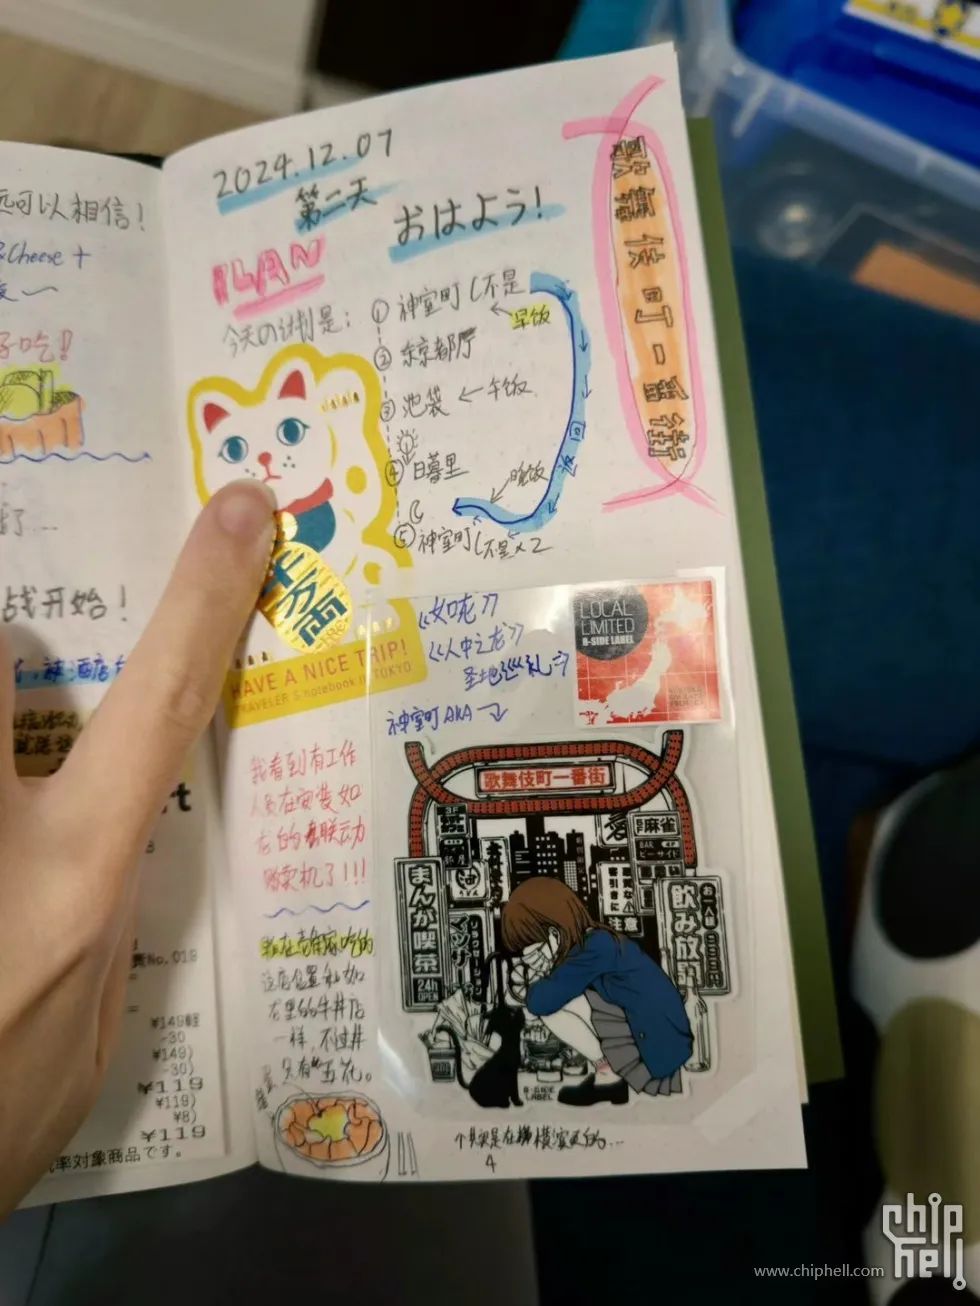 可以相信!
&Cheese +
好吃!
了...
战开始!
No.019
¥149軽
-30
¥149)
-30)
¥119
¥119)
¥8)
¥119
率対象商品です。
2024.12.07
第二天
おはよう!
PLAN
今天の计划是:
① 神室町(不是
← 早饭
② 东京都厅
③ 池袋 ← 午饭
④ 日暮里
晚饭
返回
⑤ 神室町(不是×2
歌舞伎町一番街
千万両
HAVE A NICE TRIP!
TRAVELER'S notebook in TOKYO
《如龙》
《人中之龙》
圣地巡礼
神室町AKA
LOCAL
LIMITED
B-SIDE LABEL
歌舞伎町一番街
麻雀
BAR
ビーサイド
まんが喫茶
24h
OPEN
マッサージ
客引きに
注意
お一人様
飲み放題
B-SIDE
LABEL
我看到有工作
人员在安装如
龙的联动
贩卖机了!!!
我在吃的
这店位置和如
龙里的牛丼店
一样,不过丼
只有"五花。
4
chip
hell
www.chiphell.com